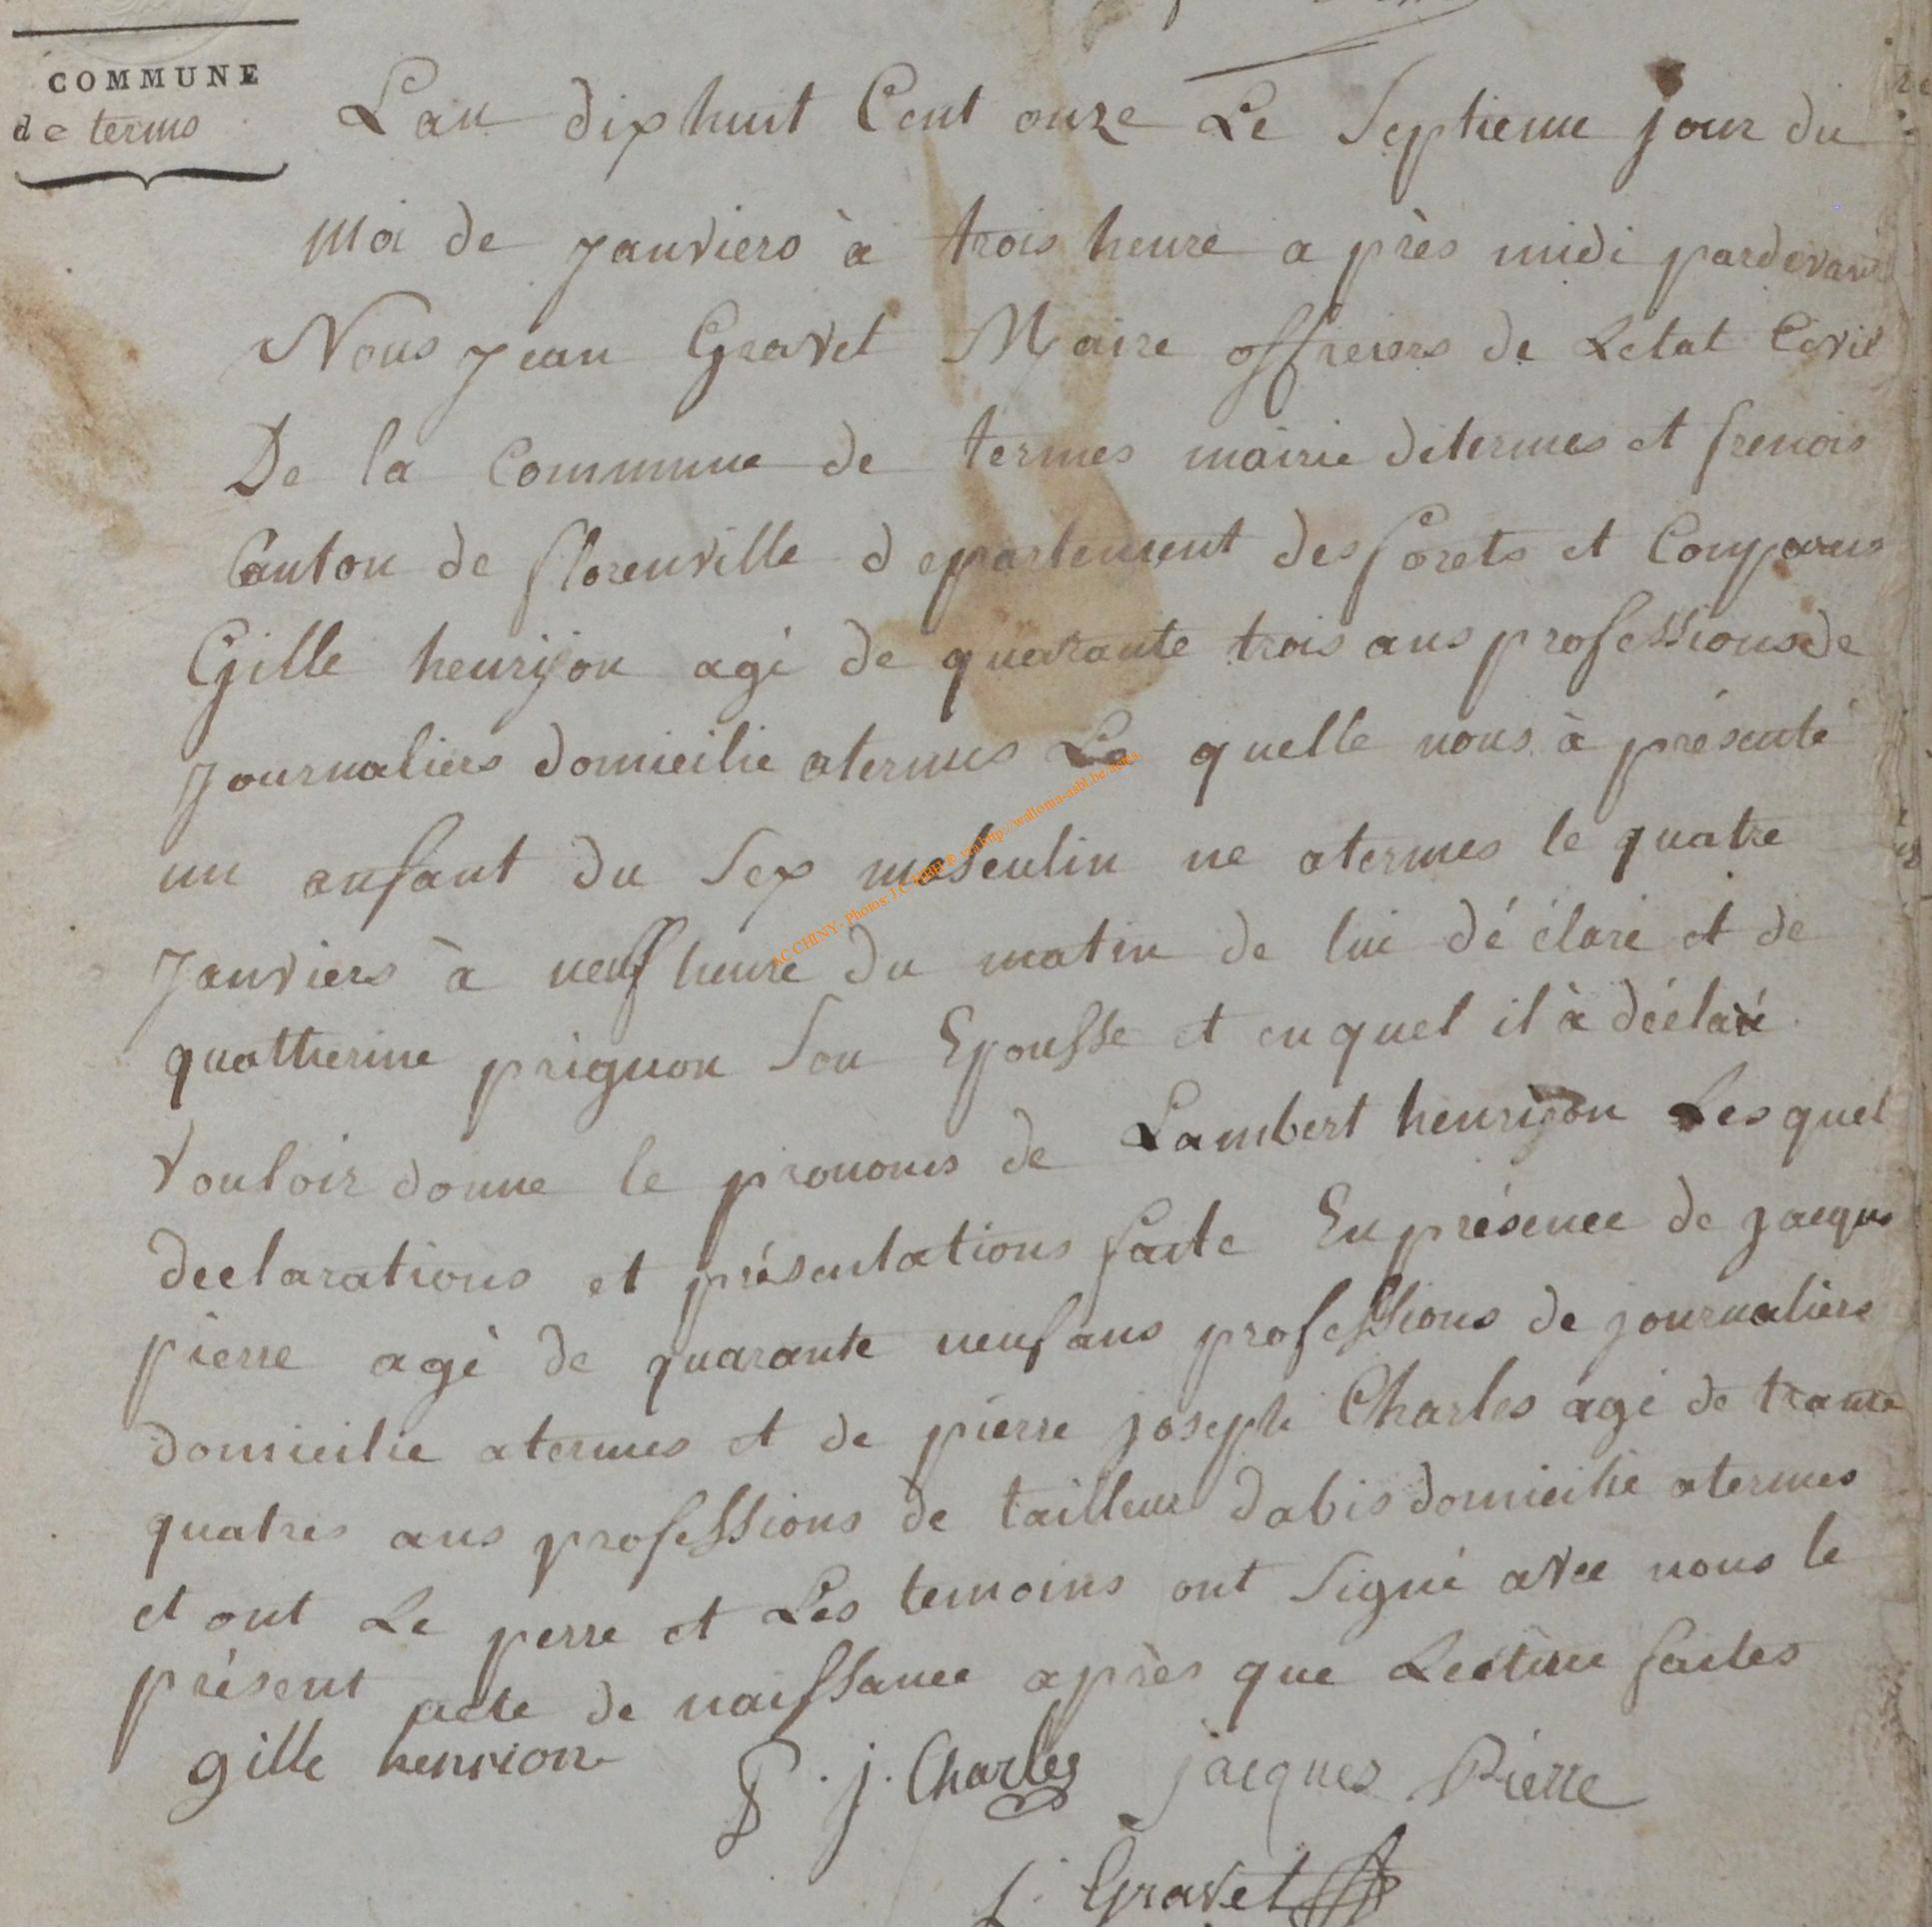 COMMUNE
de terms
Lan dix huit Cent onze Le Septieme jour du
moi de Janviers à trois heure a près midi pardevant
Nous Jean Gravet Maire officiers de Letat Civil
De la Commune de termes mairie determes et frenois
Canton de florenville departement des forets et Comparus
Gille henrijon agé de quarante trois ans professionsde
Journaliers domicilie atermes Le quelle nous à présenté
un anfant du Sex masculin ne atermes le quatre
Janviers à neuf heure du matin de lui dé clare et de
quattherine prignon Son Epousse et en quel il à déclaré
Vouloir donne le pronoms de Lambert henrijon Les quel
declarations et présentations faite En présence de jacques
pierre agé de quarante neuf ans professions de journaliers
domicilie atermes et de pierre joseph Charles agé de trante
quatres ans professions de tailleur dabis domicilié atermes
et ont Le perre et Les temoins ont Signé avec nous le
présent acte de naissance après que Lecture faites
gille henrion P. j. Charles jacques Pierre
j. Gravet
AC CHINY- Photos: J.C. HBH ® via http://wallonia-asbl.be/actes